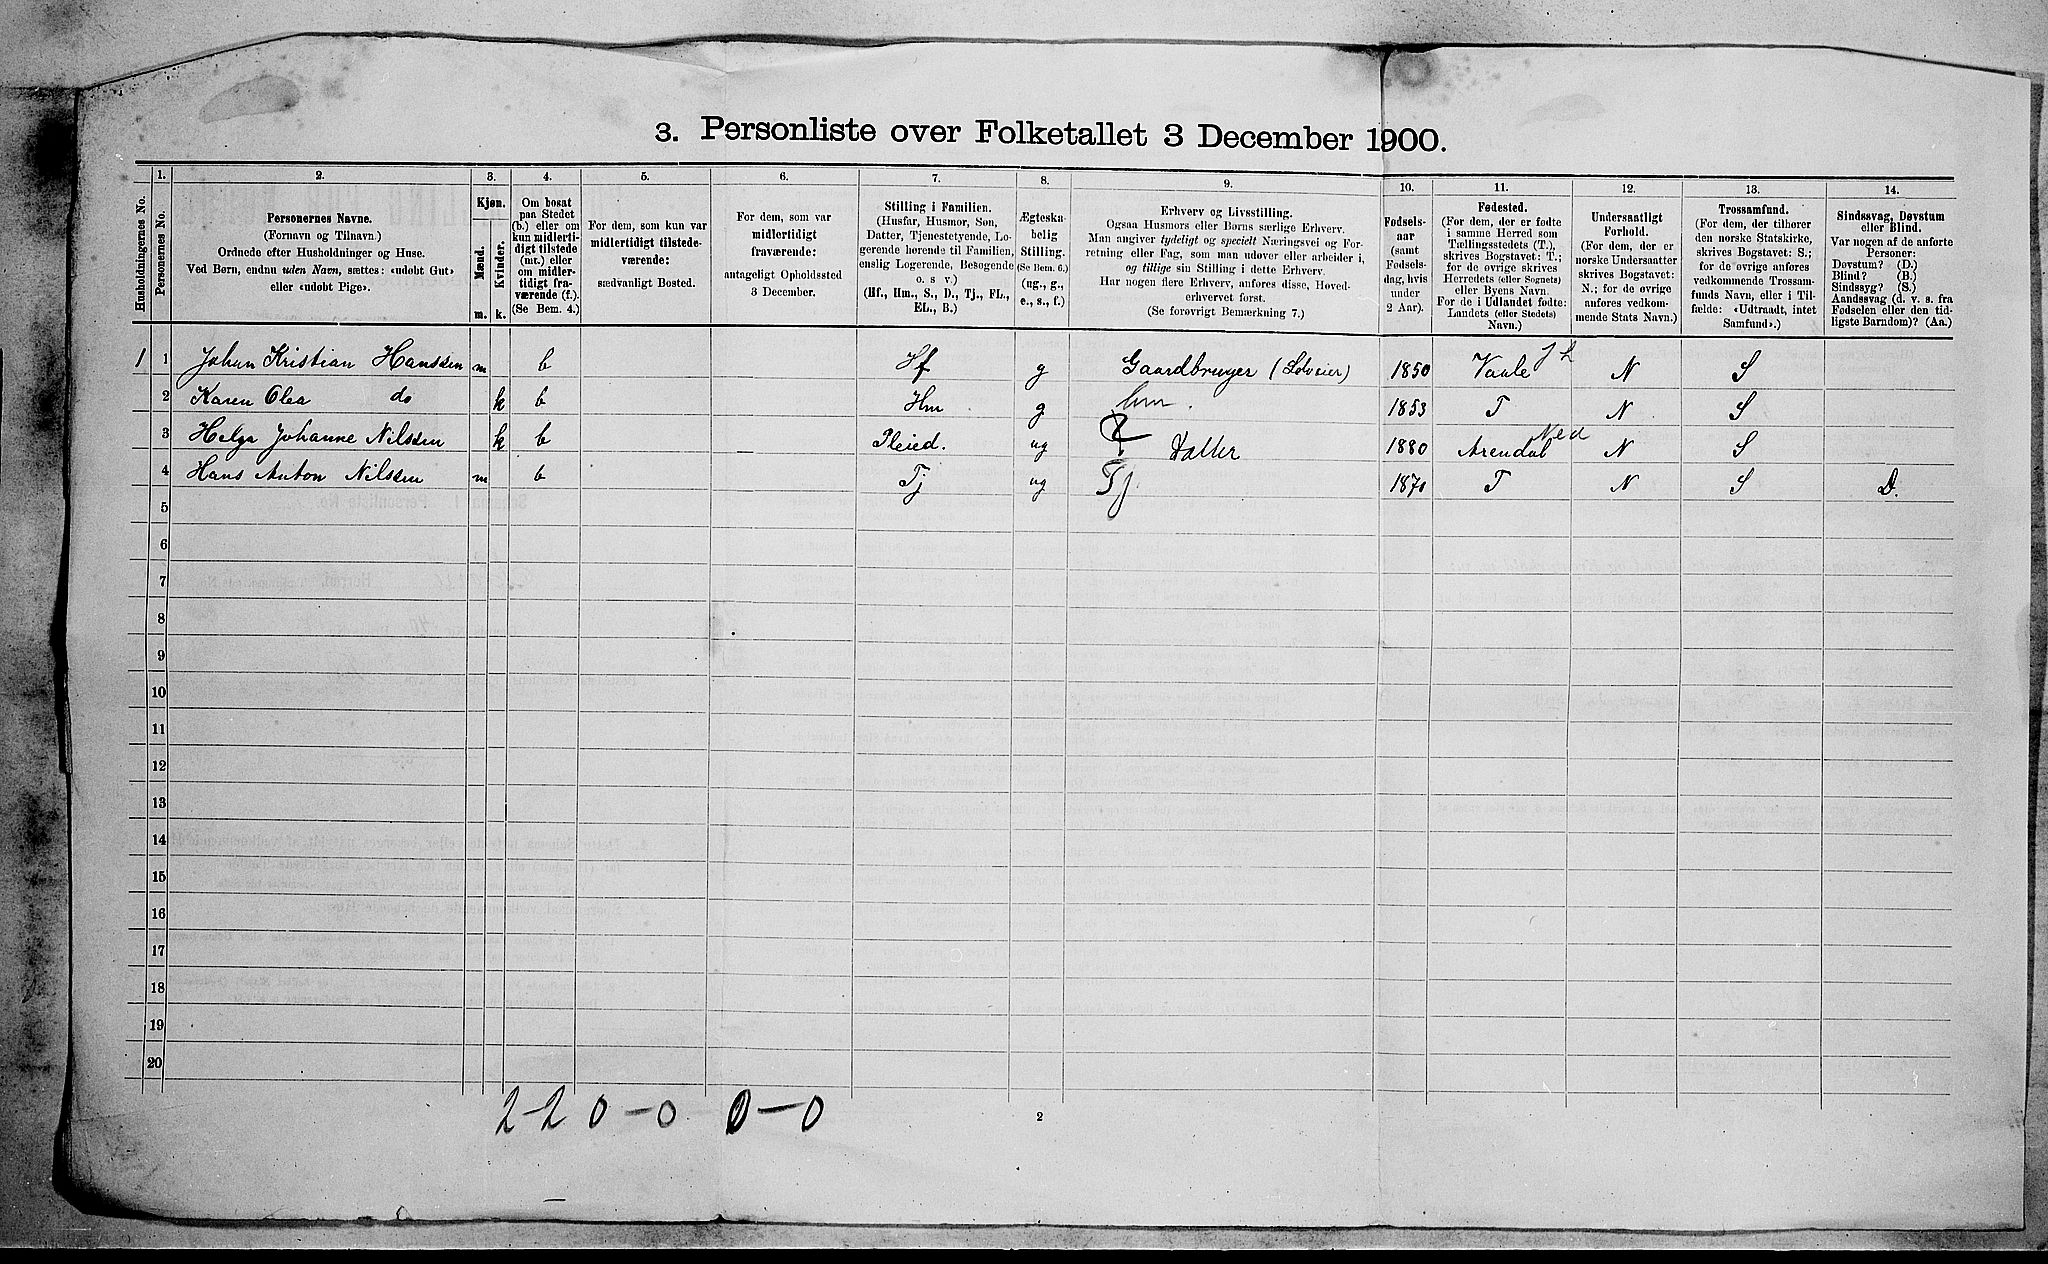 3. Personliste over Folketallet 3 December 1900.
Husholdningernes No.
1.
Personernes No.
2.
Personernes Navne.
(Fornavn og Tilnavn.)
Ordnede efter Husholdninger og Huse.
Ved Børn, endnu uden Navn, sættes: «udobt Gut»
eller «udobt Pige».
3.
Kjøn.
Mænd.
Kvinder.
m.
k.
4.
Om bosat
paa Stedet
(b.) eller om
kun midlerti-
digt tilstede
(mt.) eller
om midler-
tidigt fra-
værende (f.).
(Se Bem. 4.)
5.
For dem, som kun var
midlertidigt tilstede-
værende:
sædvanligt Bosted.
6.
For dem, som var
midlertidigt
fraværende:
antageligt Opholdssted
3 December.
7.
Stilling i Familien.
(Husfar, Husmor, Søn,
Datter, Tjenestetyende, Lo-
gerende hørende til Familien,
enslig Logerende, Besøgende
o. s v.)
(Hf., Hm., S., D., Tj., FL.,
EL., B.)
8.
Ægteska-
belig
Stilling.
(Se Bem. 6.)
(ug., g.,
e., s., f.)
9.
Erhverv og Livsstilling.
Ogsaa Husmors eller Børns særlige Erhverv.
Man angiver tydeligt og specielt Næringsvei og For-
retning eller Fag, som man udøver eller arbeider i,
og tillige sin Stilling i dette Erhverv.
Har nogen flere Erhverv, anføres disse, Hoved-
erhvervet først.
(Se forøvrigt Bemærkning 7.)
10.
Fødsels-
aar
(samt
Fødsels-
dag, hvis
under
2 Aar).
11.
Fødested.
(For dem, der er fødte
i samme Herred som
Tællingsstedets (T.),
skrives Bogstavet: T.;
for de øvrige skrives
Herredets (eller Sognets)
eller Byens Navn.
For de i Udlandet fødte:
Landets (eller Stedets)
Navn.)
12.
Undersaatligt
Forhold.
(For dem, der er
norske Undersaatter
skrives Bogstavet:
N.; for de øvrige
anføres vedkom-
mende Stats Navn.)
13.
Trossamfund.
(For dem, der tilhører
den norske Statskirke,
skrives Bogstavet: S.;
for de øvrige anføres
vedkommende Trossam-
funds Navn, eller i Til-
fælde: «Udtraadt, intet
Samfund».)
14.
Sindssvag, Døvstum
eller Blind.
Var nogen af de anførte
Personer:
Døvstum? (D.)
Blind? (B.)
Sindssyg? (S.)
Aandssvag (d. v. s. fra
Fødselen eller den tid-
ligste Barndom)? (Aa.)
1 1 Johan Kristian Hanssen m b Hf g Gaardbruger (Selveier) 1850 Vaale N S
2 Karen Olea do k b Hm g hm. 1853 T N S
3 Helga Johanne Nilssen k b Pleied. ug Datter 1880 Arendal Ned N S
4 Hans Anton Nilssen m b Tj ug Tj 1870 T N S D.
5
6
7
8
9
10
11
12
13
14
15
16
17
18
19
20
2-2 0-0 0-0
2